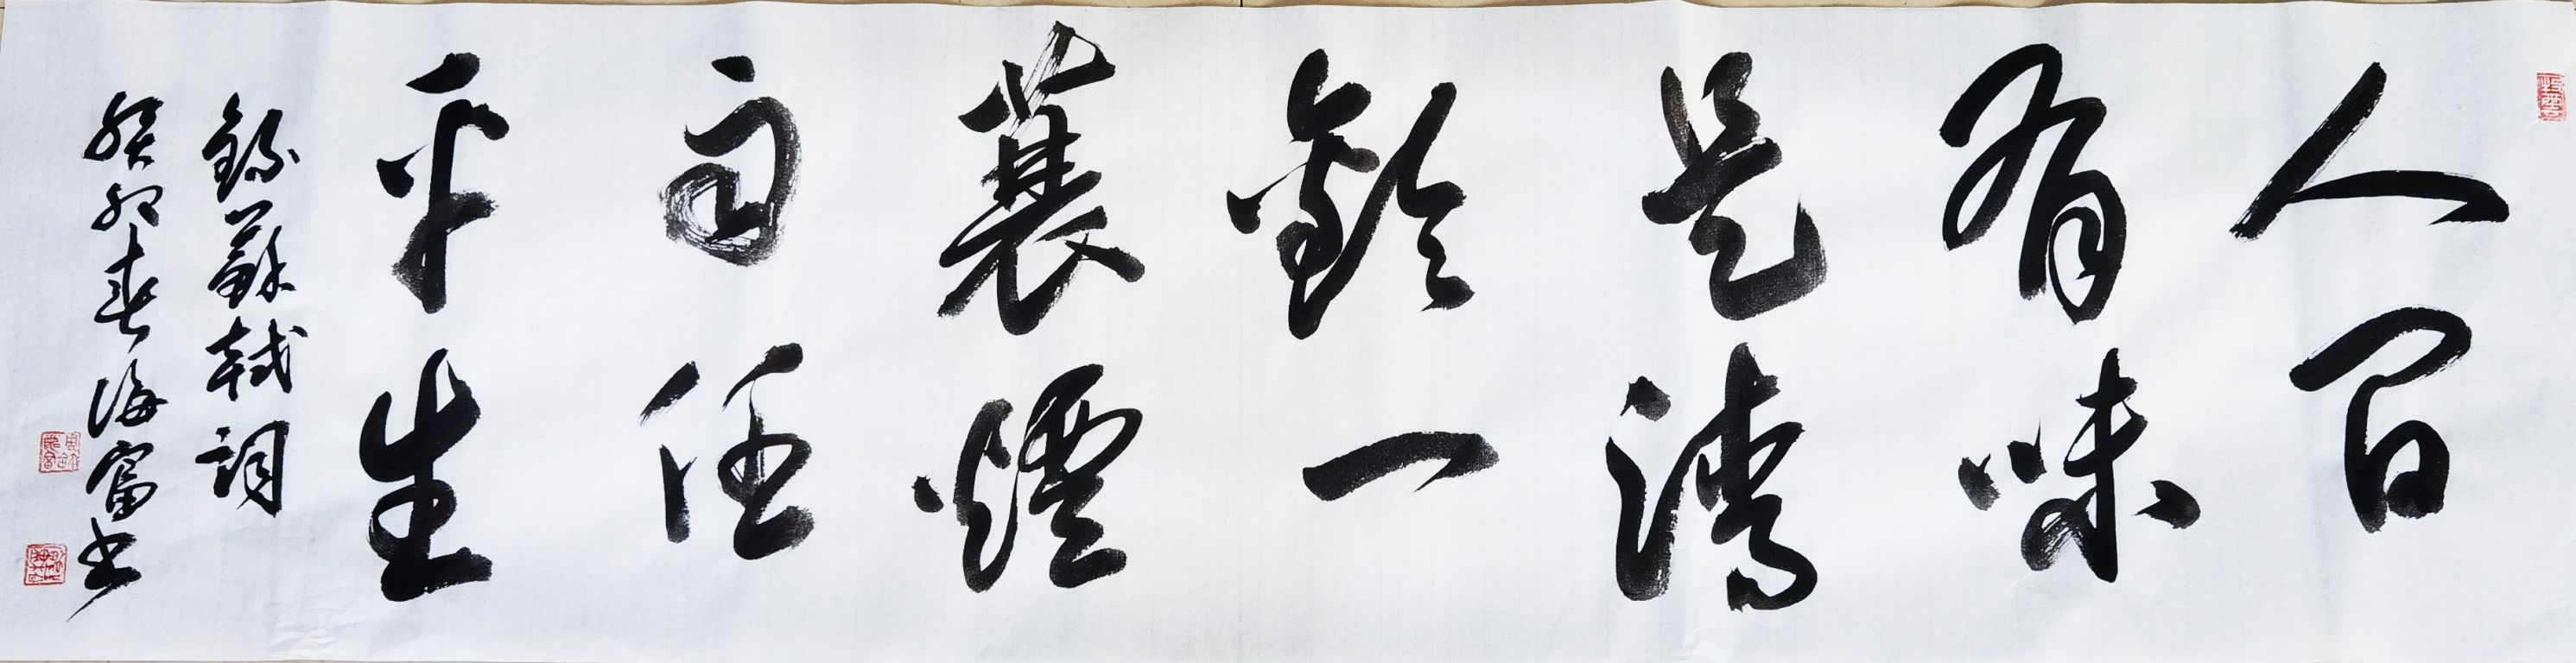 人間
有味
是清
歡一
蓑煙
雨任
平生
錄蘇軾詞
癸卯春海富書